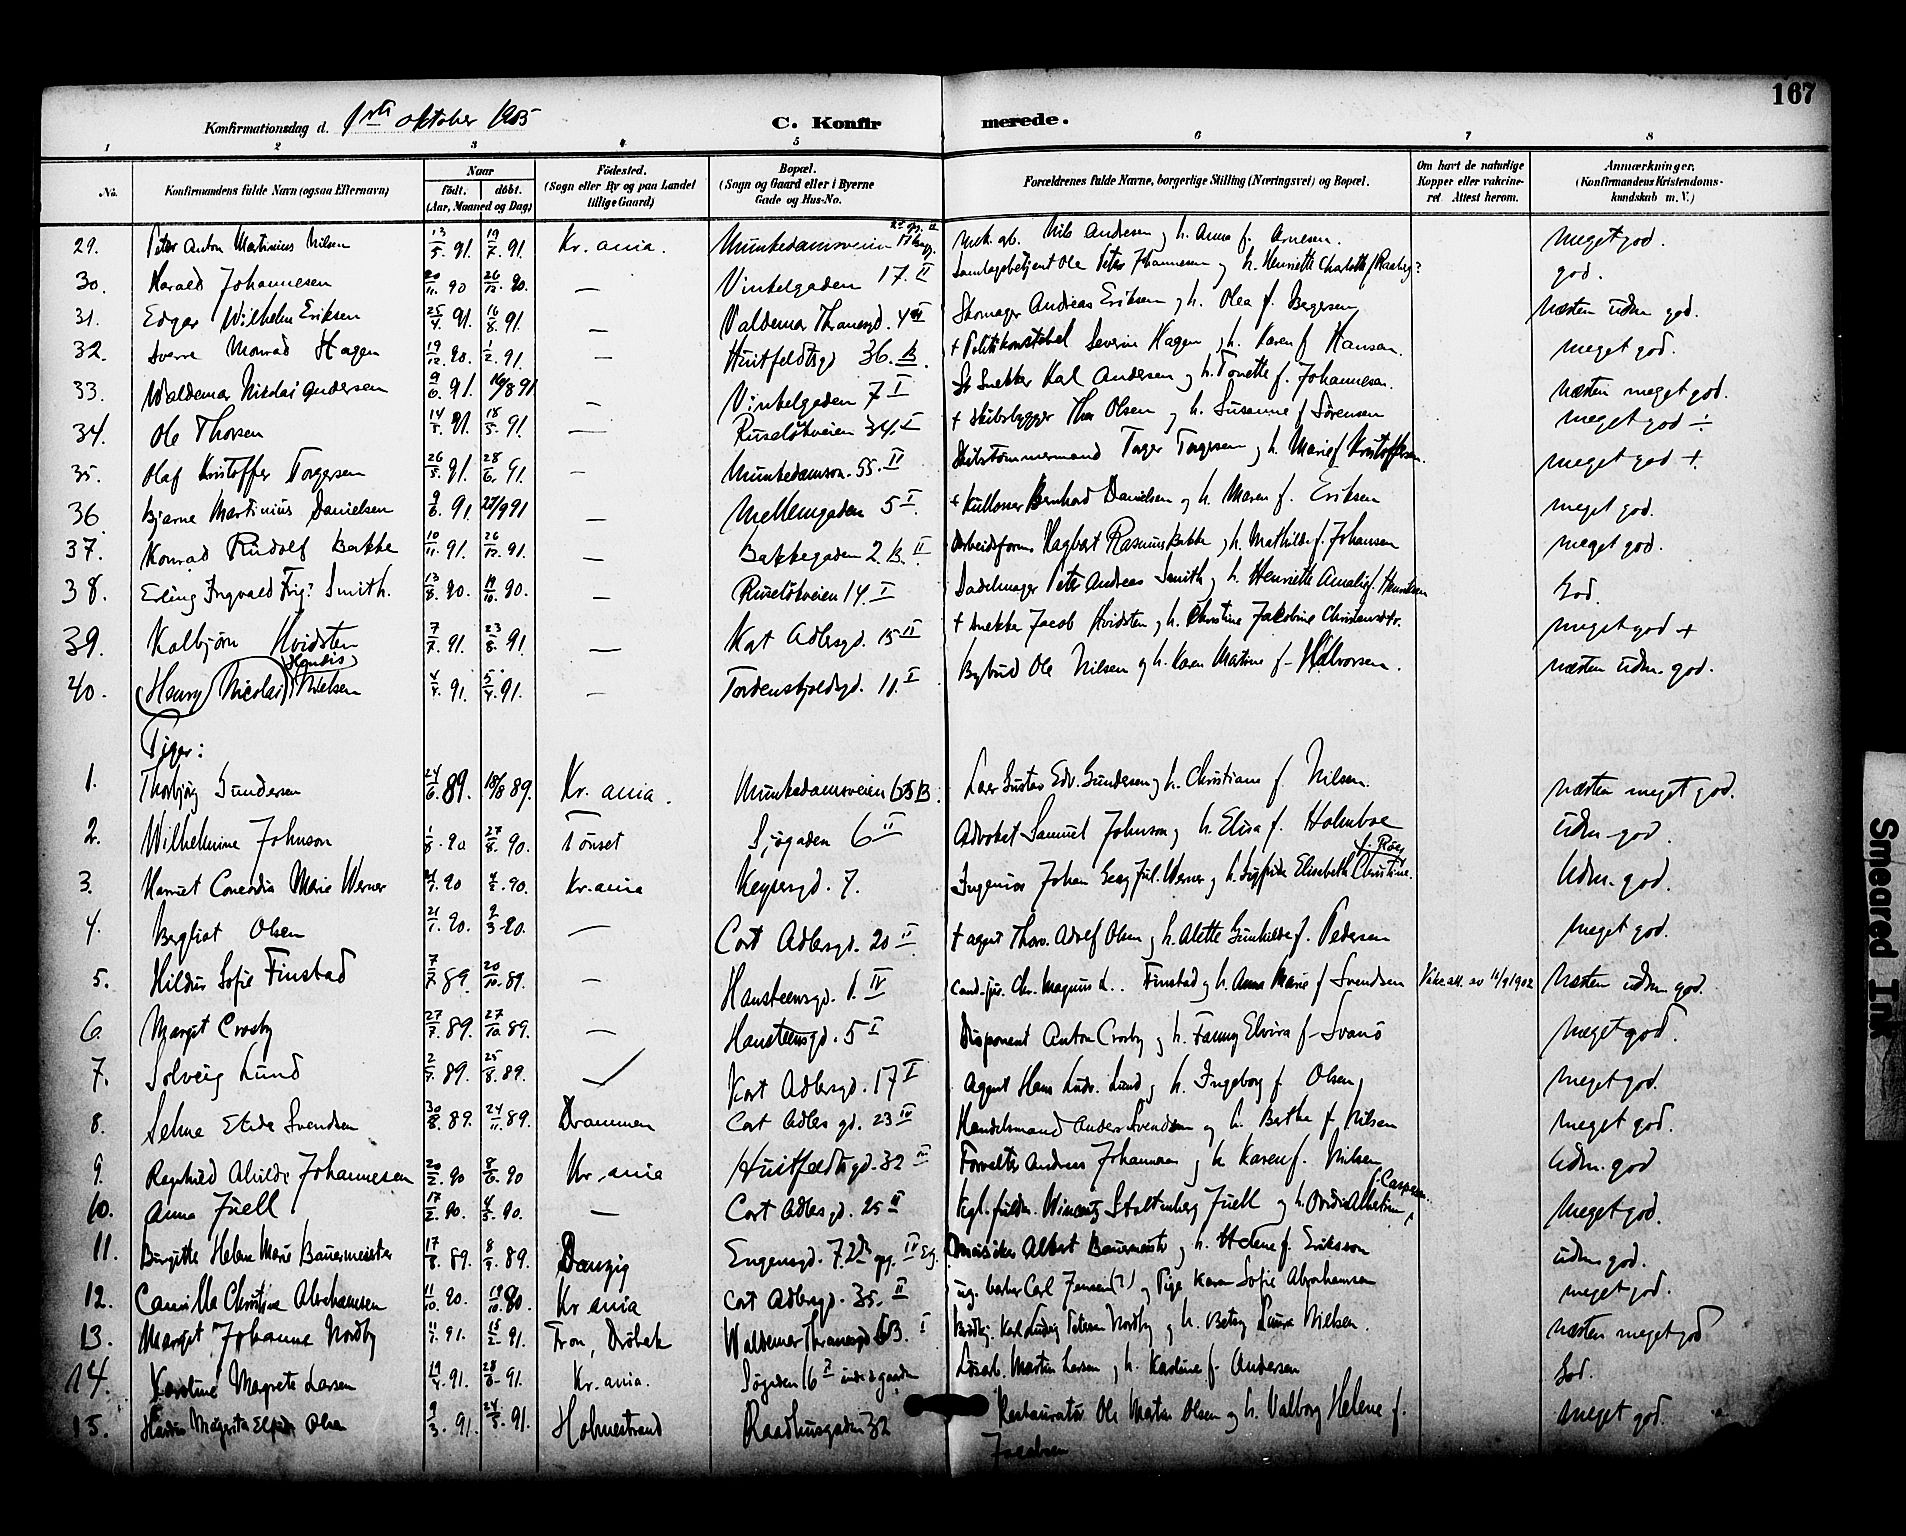 167
Konfirmationsdag d. 1ste oktober 1905 C. Konfirmerede.
1 2 3 4 5 6 7 8
No. Konfirmandens fulde Navn (ogsaa Efternavn) Naar født. døbt. (Aar, Maaned og Dag) Fødested. (Sogn eller By og paa Landet tillige Gaard) Bopæl. (Sogn og Gaard eller i Byerne Gade og Hus-No. Forældrenes fulde Navne, borgerlige Stilling (Næringsvei) og Bopæl. Om havt de naturlige Kopper eller vakcineret. Attest herom. Anmærkninger. (Konfirmandens Kristendomskundskab m. V.)
29. Peter Anton Martinius Nilsen 13/5. 91. 19/7. 91. Kr. ania. Munkedamsveien Nils Andresen og h. Anna f. Arnesen. meget god.
30. Harald Johannesen 20/11. 90 26/12. 90. — Vinkelgaden 17. II Ole Peter Johannesen og h. Henriette Charlotte f. god.
31. Edgar Wilhelm Eriksen 25/4. 91. 16/8. 91. — Valdemar Thranesgd. Skomager Andreas Eriksen og h. Olea f. Bergersen næsten udm. god.
32. Sverre Monrad Hagen 19/12. 90. 1/2. 91. — Huitfeldtsgd 36. B. + Politikonstabel Severin Hagen og h. Karen f. Hansen. meget god.
33. Waldemar Nikolai Andersen 9/6. 91. 16/8 91 — Vinkelgaden 7 I Snekker Karl Andersen og h. Tonette f. Johannesen. næsten meget god.
34. Ole Thorsen 18/5. 91. — Ruseløkveien 34. I + Skibsbygger Thor Olsen og h. Susanne f. Sørensen meget god ÷
35. Olaf Kristoffer Torgersen 26/5. 91. 28/6. 91. — Munkedamsv. 55. II Skibstømmermand Torger Torgersen og h. Marie f. Kristoffersen. meget god +.
36 Bjarne Martinius Danielsen 9/6. 91 27/9 91 — Mellemgaden 5 I. + Kullosser Bernhard Danielsen og h. Maren f. Eriksen meget god.
37. Konrad Rudolf Bakke 10/11. 91. 26/12. 91. — Bakkegaden 2. B. II Arbeidsform. Hagbart Rasmus Bakke og h. Mathilde f. Johansen meget god.
38. Erling Ingvald Smith. 13/8. 90. 19/10. 90. — Ruseløkveien 14. I Sadelmager Peter Andreas Smith og h. Henriette Amalie f. Henriksen God.
39. Kolbjørn Hvidsten 7/7. 91. 23/8. 91 — Kort Adlersgd. 15 II + snekker Jacob Hvidsten og h. Christine Jakobine Christensdtr. meget god +
40. Henry Nicolai Nielsen 91. 5/4. 91. — Tordenskjoldsgd. 11. I Bybud Ole Nilsen og h. Karen Matine f. Halvorsen. næsten udm. god.
Piger:
1. Thorbjørg Gundersen 24/6. 89. 18/8 89. Kr. ania. Munkedamsveien B. Gustav Edv. Gundersen og h. Christiane f. Nilsen. næsten meget god.
2. Wilhelmine Johnson 1/8. 90 27/8. 90. Tønset Sjøgaden 6 II Advokat Samuel Johnson og h. Elisa f. Holmboe udm. god.
3. Harriet Concordia Marie Werner 90 90. Kr. ania Keysersgd. 7. Ingeniør Johan Georg Jul. Werner og h. Sigfride Elisabeth Christine. Udm. god.
4. Bergliot Olsen 21/1. 90. 9/3 90. — Cort Adlersgd. 20 II + agent Thorv. Adolf Olsen og h. Alette Gunhilde f. Pedersen meget god.
5. Hildur Sofie Finstad 7/7 89. 20/10. 89. — Hansteensgd. 1. IV cand. jur. Chr. Magnus L. Finstad og h. Anna Marie f. Svendsen Næsten udm. god.
6. Margit Crosby 27/7. 89. 27/10 89. — Hansteensgd. 5 I Disponent Anton Crosby og h. Fanny Elvira f. Svanø Meget god.
7. Solveig Lund 2/7. 89. 25/8. 89. — Kort Adlersgd. 17 I Agent Hans Ludv. Lund og h. Ingeborg f. Olsen, meget god.
8. Selma Svendsen 30/8. 89. 24/11. 89. Drammen Cort Adlers gd. 23 IV Handelsmand Anders Svendsen og h. Berthe f. Nilsen meget god.
9. Ragnhild Alvilde Johannesen 20/2. 90 8/6. 90 Kr. ania Huitfeldtsgd. 32 III Forvalter Andreas Johannesen og h. Karen f. Nilsen Udm. god
10. Anna Juell 17/2. 90. 4/5. 90. — Cort Adlersgd. 25 II Kgl. fuldm. Wincentz Stoltenberg Juell og h. f. Caspersen. Meget god.
11. Birgitte Helene Marie Bauermeister 17/8. 89. 89. Danzig Engensgd. 7. 2den opg. IV Eg. Musiker Albert Bauermeister og h. Helene f. Eriksson udm. god.
12. Camilla Christine Abrahamsen 11/10. 90. 19/10. 90. Kr ania Cort Adlersgd. 35. II ug. barber Carl Jensen (?) og Pige Karen Sofie Abrahamsen meget god.
13. Margit Johanne Nordby 91. 15/2. 91. Fron, Drøbak Waldemar Thranesgd B. I Karl Ludvig Petersen Nordby og h. Betsy Laura Nielsen. Næsten meget god
14. Karoline Magrete Larsen 19/4. 91. 28/6. 91. Kr. ania. Søgaden 16 I inde i gaarden Løsarb. Martin Larsen og h. Karoline f. Andersen God.
15. Olsen 9/3. 91. 24/5. 91. Holmestrand Raadhusgaden 32 Restauratør Ole Martin Olsen og h. Valborg Helene f. Jacobsen meget god.
Smeared Ink